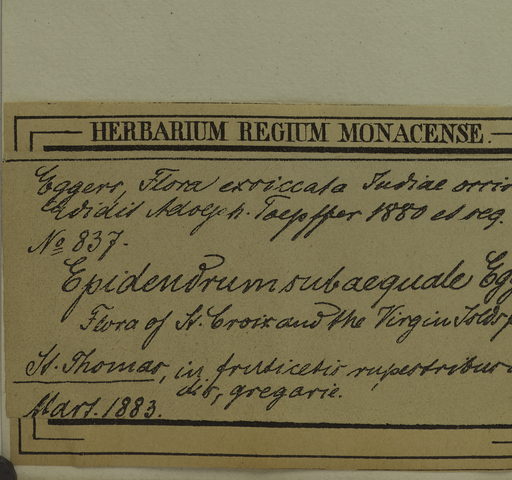 HERBARIUM REGIUM MONACENSE.
Eggers, Flora exsiccata Indiae occi
Edidit Adolph. Toepffer 1880 et seq.
No 837.
Epidendrum subaequale Egg
Flora of St. Croix and the Virgin Islds p
St. Thomas, in fruticetis rupestribus
dis, gregarie.
Mart. 1883.